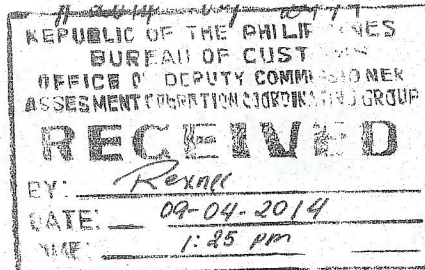 REPUBLIC OF THE PHILIP NES
BUREAU OF CUST
OFFICE O DEPUTY COMMISSIONER
ASSESMENT OPERATION COORDINATING GROUP
RECEIVED
BY:
DATE: 09-04-2014
TIME: 1:25 pm